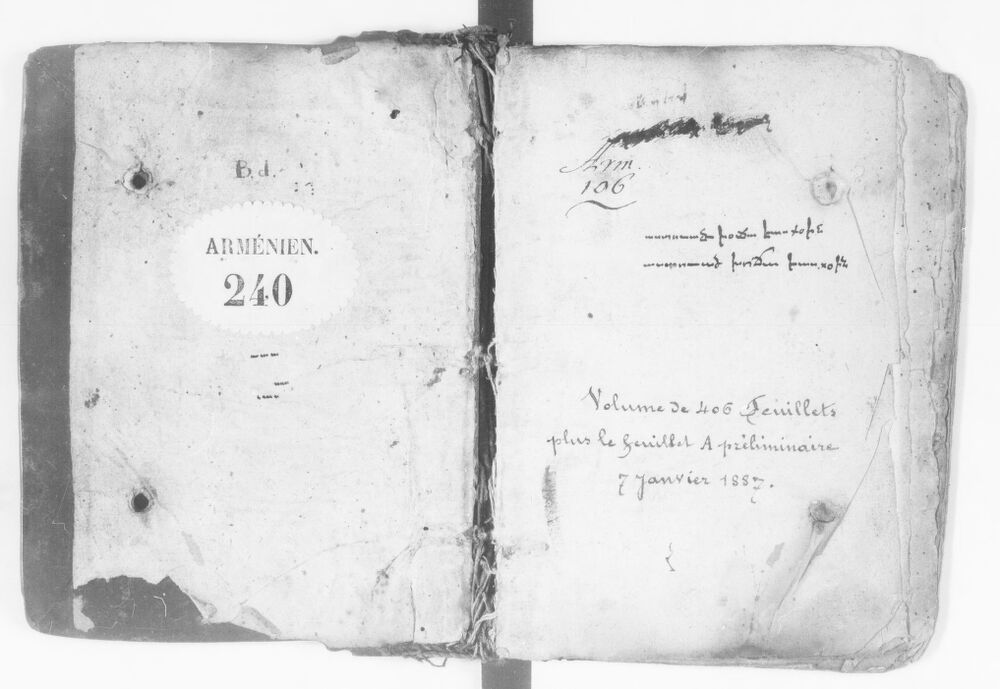 B.d.
ARMÉNIEN.
240
Arm.
106
Volume de 406 Feuillets
plus le feuillet A préliminaire
7 Janvier 1887.